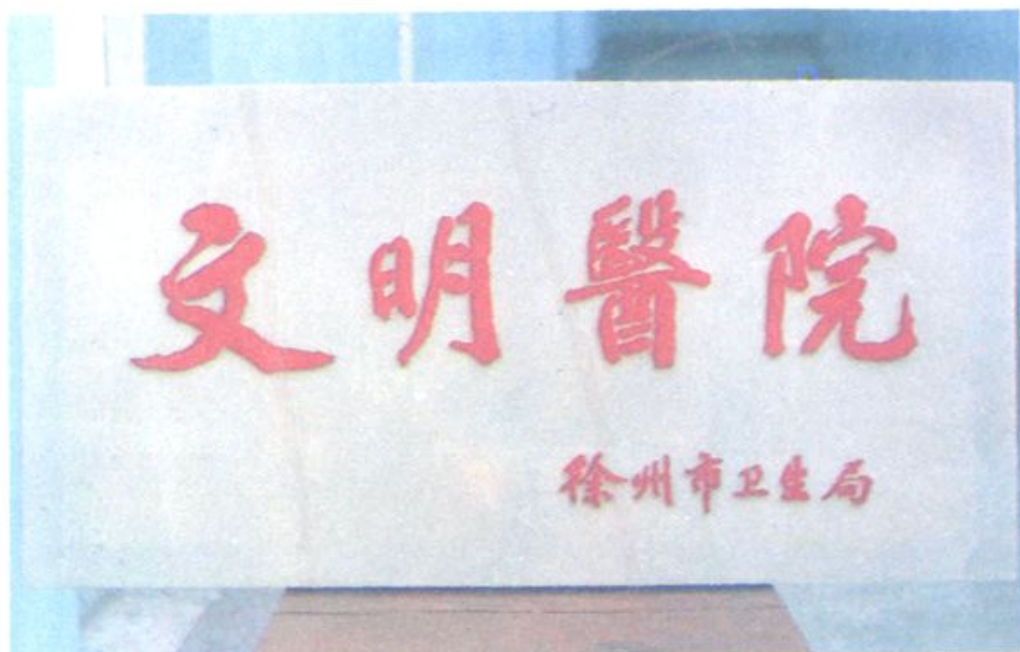 文明醫院
徐州市卫生局